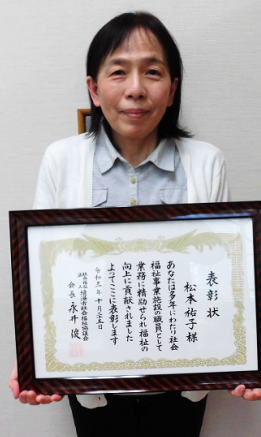 表彰状
松本祐子様
あなたは多年にわたり社会
福祉事業施設の職員として
業務に精励せられ福祉の
向上に貢献されました
よってここに表彰します
令和三年十月二十五日
会長 永井 俊